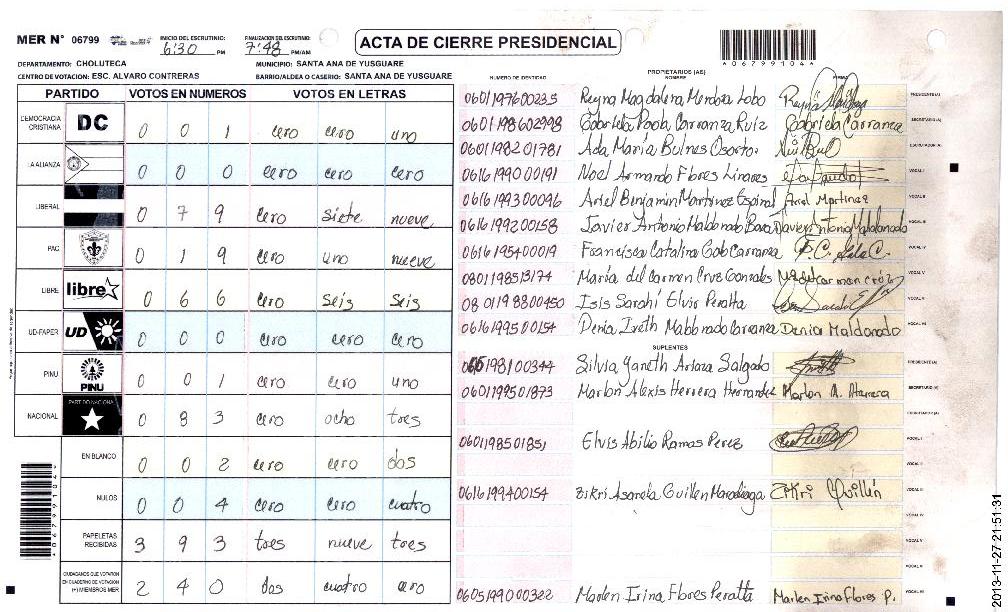 MER N° 06799
INICIO DEL ESCRUTINIO: 6:30 PM
FINALIZACION DEL ESCRUTINIO: 7:48 PM/AM
ACTA DE CIERRE PRESIDENCIAL
* 0 6 7 9 9 1 0 4 *
DEPARTAMENTO: CHOLUTECA
MUNICIPIO: SANTA ANA DE YUSGUARE
CENTRO DE VOTACION: ESC. ALVARO CONTRERAS
BARRIO/ALDEA O CASERIO: SANTA ANA DE YUSGUARE
PARTIDO VOTOS EN NUMEROS VOTOS EN LETRAS
DEMOCRACIA CRISTIANA DC 0 0 1 cero cero uno
LA ALIANZA 0 0 0 cero cero cero
LIBERAL 0 7 9 cero siete nueve
PAC 0 1 9 cero uno nueve
LIBRE libre 0 6 6 cero seis seis
UD-FAPER UD 0 0 0 cero cero cero
PINU PINU 0 0 1 cero cero uno
NACIONAL PARTIDO NACIONAL 0 8 3 cero ocho tres
EN BLANCO 0 0 2 cero cero dos
NULOS 0 0 4 cero cero cuatro
PAPELETAS RECIBIDAS 3 9 3 tres nueve tres
CIUDADANOS QUE VOTARON EN CUADERNO DE VOTACION (+) MIEMBROS MER 2 4 0 dos cuatro cero
PROPIETARIOS (AS)
NUMERO DE IDENTIDAD NOMBRE FIRMA
0601197600235 Reyna Magdalena Mendoza Lobo PRESIDENTE(A)
0601198602998 Gabriela Paola Carranza Ruiz Gabriela Carranza SECRETARIO(A)
0601198201781 Ada María Bulnes Osorto ESCRUTADOR(A)
0616199000191 Noel Armando Flores Linares VOCAL I
0616199300096 Ariel Benjamin Martinez Espinal Ariel Martinez VOCAL II
0616199200158 Javier Antonio Maldonado Javier Antonio Maldonado VOCAL III
0616195400019 Francisca Catalina Carranza VOCAL IV
0801198513174 María del Carmen Cruz Gonzales VOCAL V
0801198800450 Isis Sarahí Elvir Peralta VOCAL VI
0616199500154 Denia Ireth Maldonado Carranza Denia Maldonado VOCAL VII
SUPLENTES
198100344 Silvia Yaneth Salgado PRESIDENTE(A)
0601199501873 Marlon Alexis Herrera Hernandez Marlon A. Herrera SECRETARIO(A)
ESCRUTADOR(A)
0601198501851 Elvis Abilio Ramas Perez VOCAL I
VOCAL II
0616199400154 Zikri Guillen Maradiaga Zikri Guillén VOCAL III
VOCAL IV
VOCAL V
VOCAL VI
0605199000322 Marlen Irina Flores Peralta Marlen Irina Flores P.
* 0 6 7 9 9 1 0 4 *
2013-11-27 21:51:31